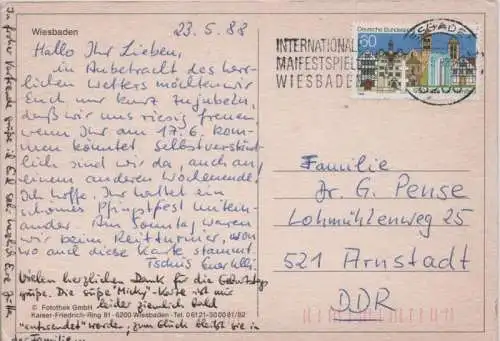 Wiesbaden
23.5.88
Hallo Ihr Lieben,
in Anbetracht des herr-
lichen Wetters möchten wir
Euch nur kurz zujubeln,
daß wir uns riesig freuen,
wenn Ihr am 17.6. kom-
men könntet. Selbstverständ-
lich sind wir da, auch an
einem anderen Wochenende!
Ich hoffe, Ihr hattet ein
schönes Pfingstfest mitein-
ander. Am Sonntag waren
wir beim Reitturnier, von
wo auch diese Karte stammt.
Tschüs Eure
Vielen herzlichen Dank für die Geburtstags
grüße. Die süße "Micky"-Katze wird mir
leider ziemlich bald
"entwendet" werden, zum Glück bleibt sie in
der Familie
In froher Vorfreude grüße ich Euch sehr herzlich Eure
© Fotothek GmbH
Kaiser-Friedrich-Ring 81 - 6200 Wiesbaden - Tel. 0 61 21-30 00 81/82
INTERNATIONALE
MAIFESTSPIELE
WIESBADEN
Deutsche Bundespost
60
Familie
Dr. G. Pense
Lohmühlenweg 25
521 Arnstadt
DDR